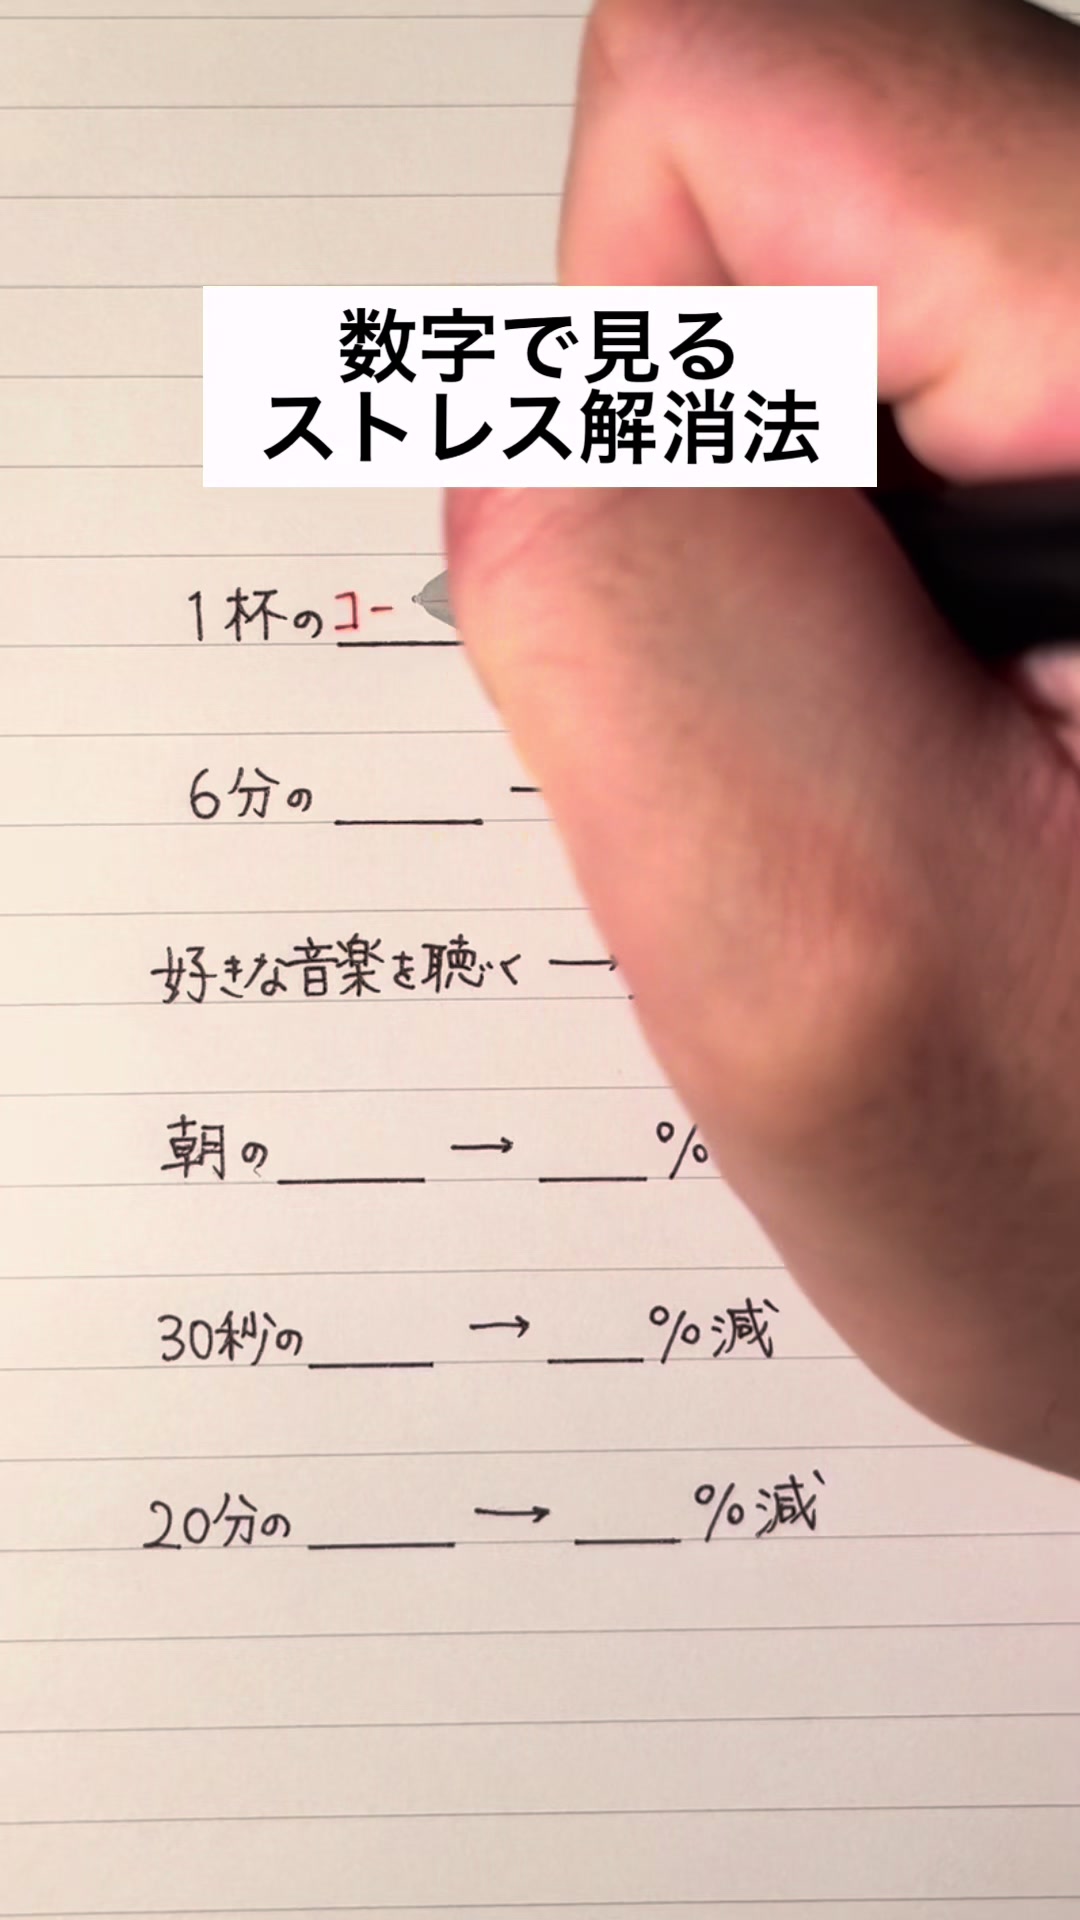 数字で見る
ストレス解消法
1杯のコー
6分の
好きな音楽を聴く →
朝の → %
30秒の → %減
20分の → %減